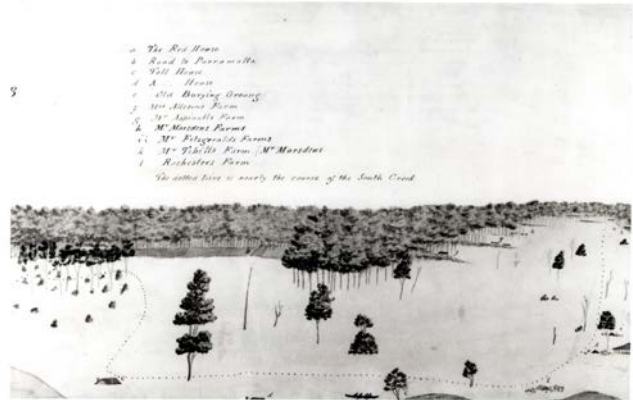 a The Red House
b Road to Parramatta
c Toll House
d A House
e Old Burying Ground
f Mrs Farm
g Mr Aspinalls Farm
h Mr Marsdens Farms
ii Mr Fitzgeralds Farms
k Mr Farm Mr Marsdens
l Rochesters Farm
The dotted line is nearly the course of the South Creek